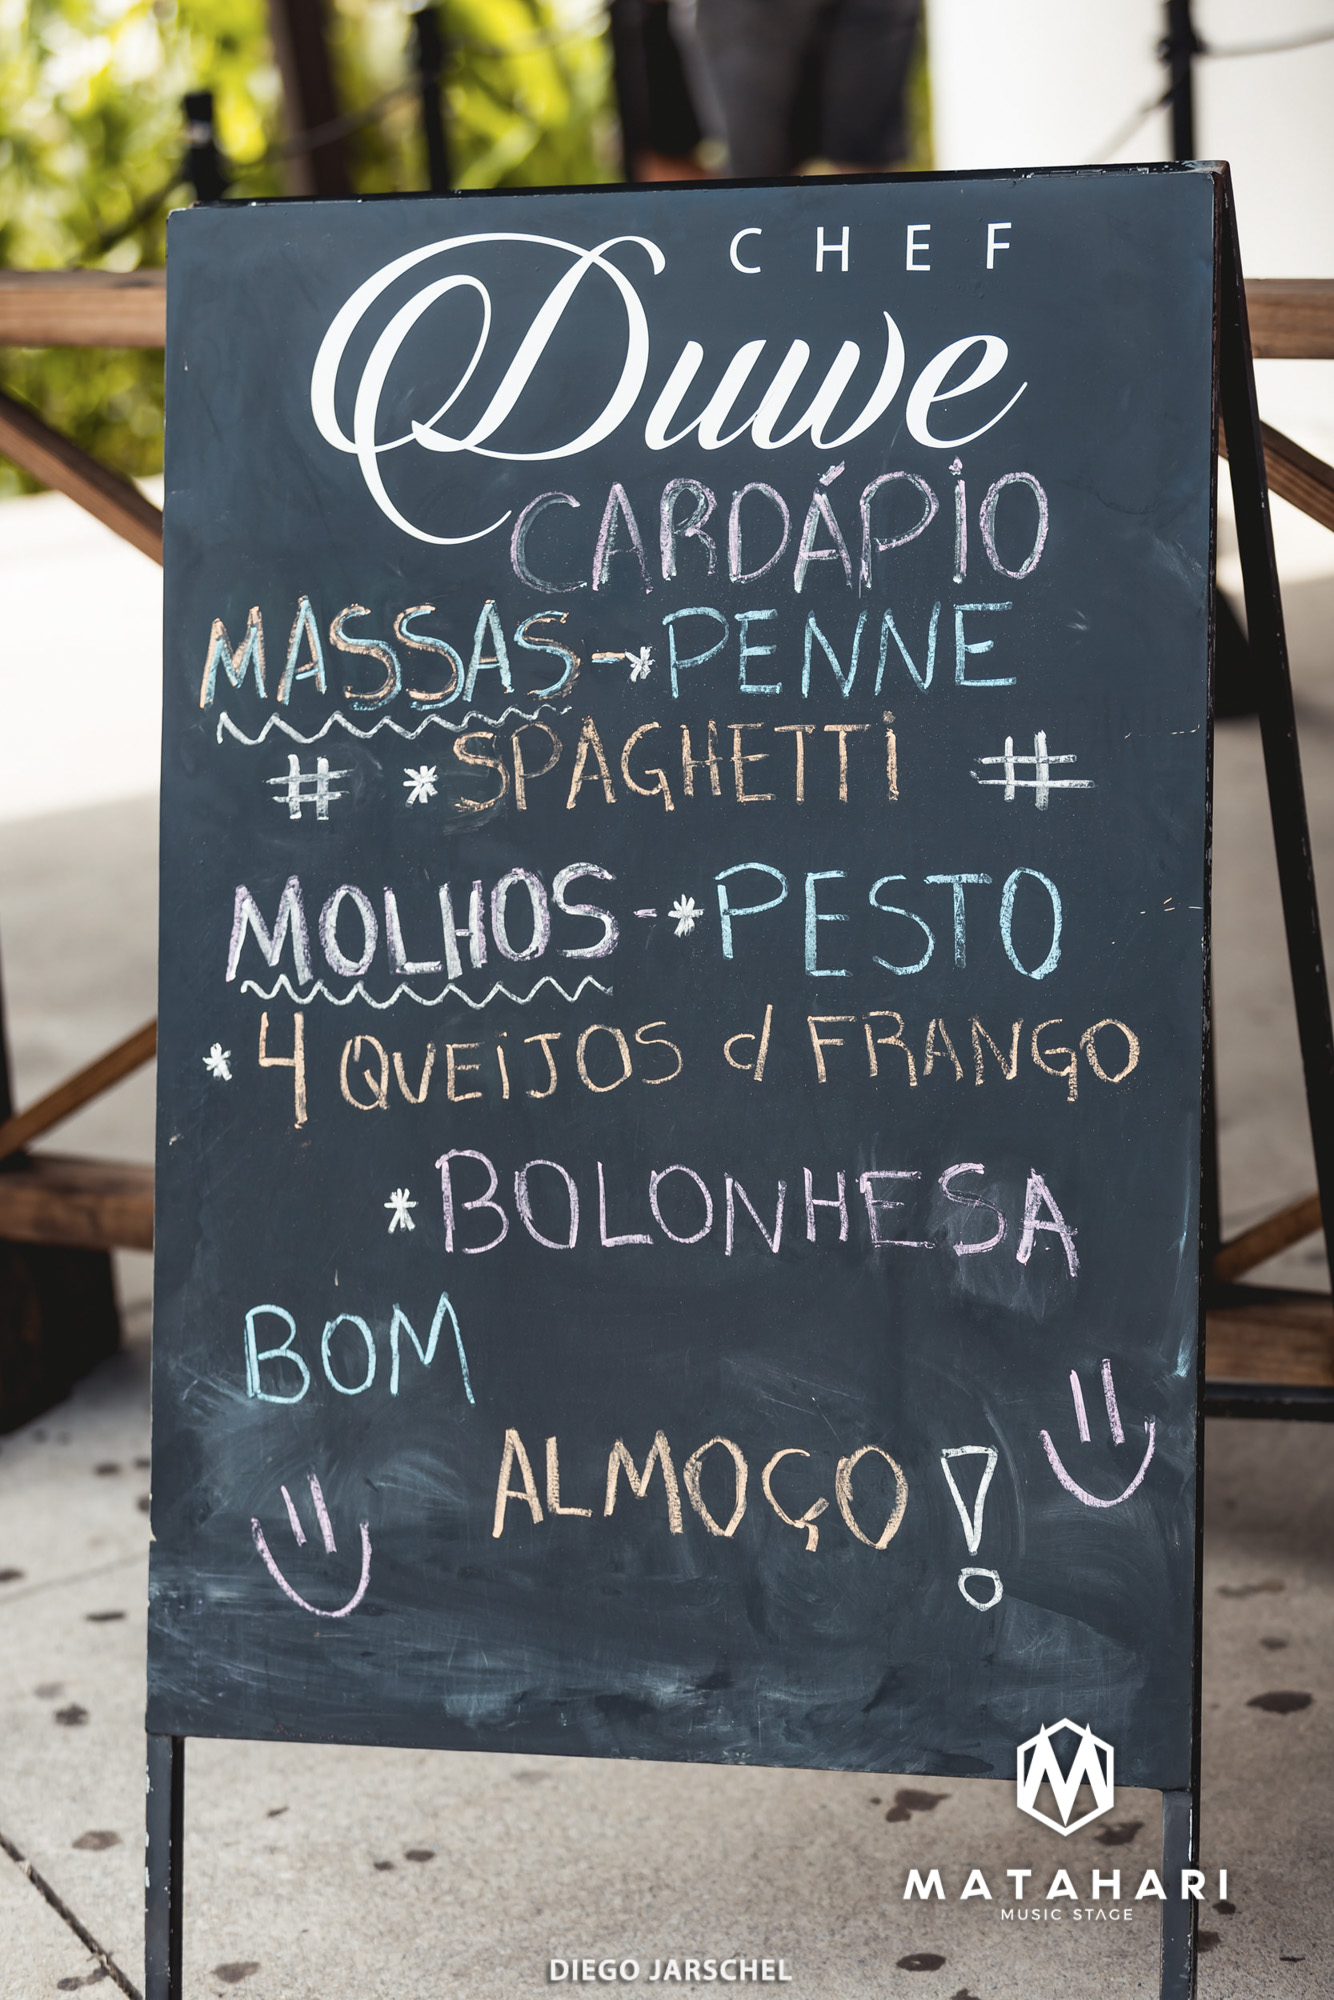 CHEF
Duwe
CARDÁPIO
MASSAS-*PENNE
# *SPAGHETTI #
MOLHOS-*PESTO
*4 QUEIJOS d FRANGO
*BOLONHESA
BOM
ALMOÇO!
MATAHARI
MUSIC STAGE
DIEGO JARSCHEL